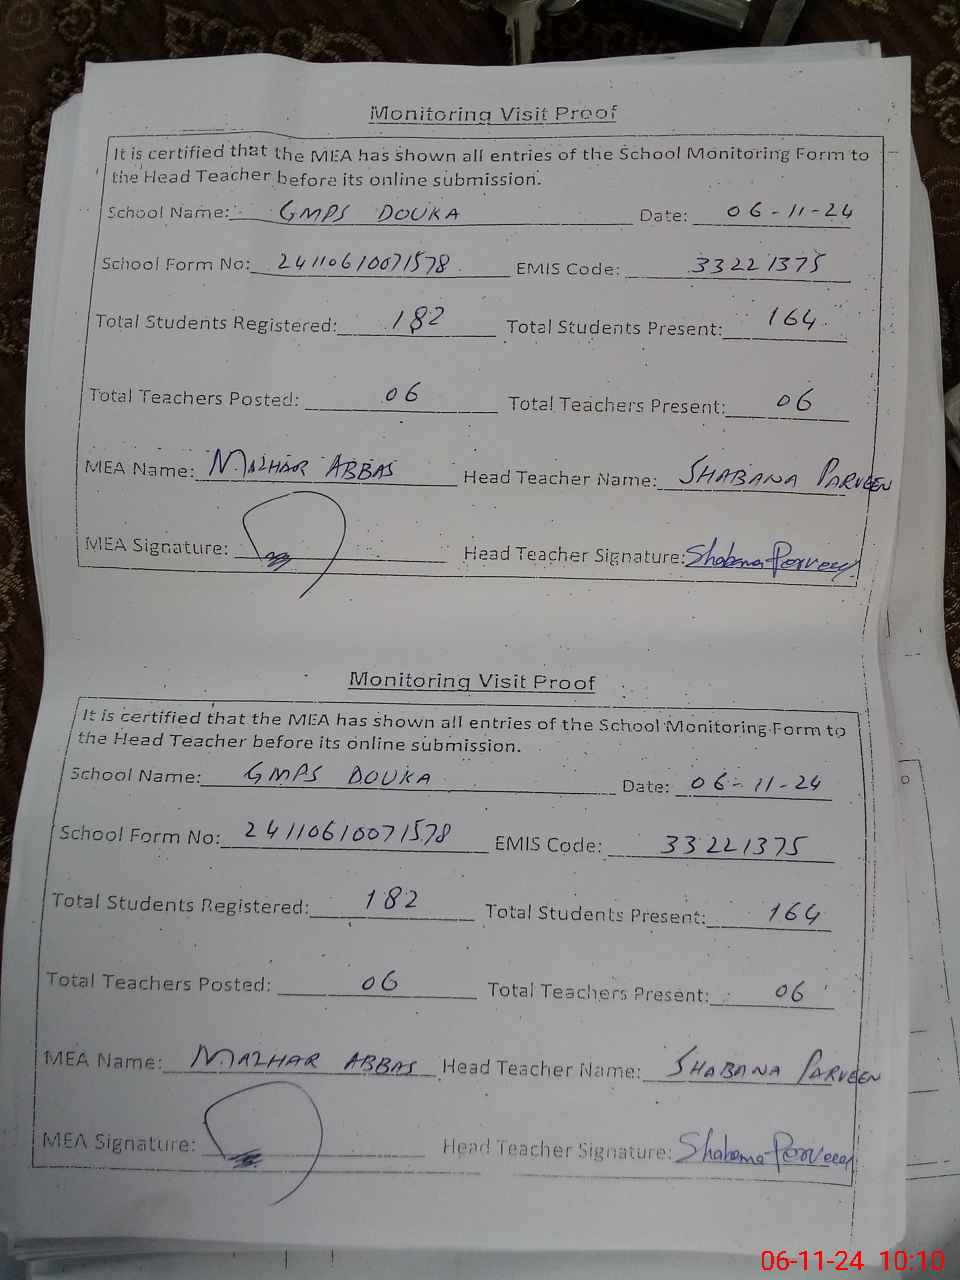 Monitoring Visit Proof
It is certified that the MEA has shown all entries of the School Monitoring Form to
the Head Teacher before its online submission.
School Name: GMPS DOUKA Date: 06-11-24
School Form No: 24110610071578 EMIS Code: 33221375
Total Students Registered: 182 Total Students Present: 164
Total Teachers Posted: 06 Total Teachers Present: 06
MEA Name: MAZHAR ABBAS Head Teacher Name: SHABANA PARVEEN
MEA Signature: Head Teacher Signature: Shabana Parveen
Monitoring Visit Proof
It is certified that the MEA has shown all entries of the School Monitoring Form to
the Head Teacher before its online submission.
School Name: GMPS DOUKA Date: 06-11-24
School Form No: 24110610071578 EMIS Code: 33221375
Total Students Registered: 182 Total Students Present: 164
Total Teachers Posted: 06 Total Teachers Present: 06
MEA Name: MAZHAR ABBAS Head Teacher Name: SHABANA PARVEEN
MEA Signature: Head Teacher Signature: Shabana Parveen
06-11-24 10:10